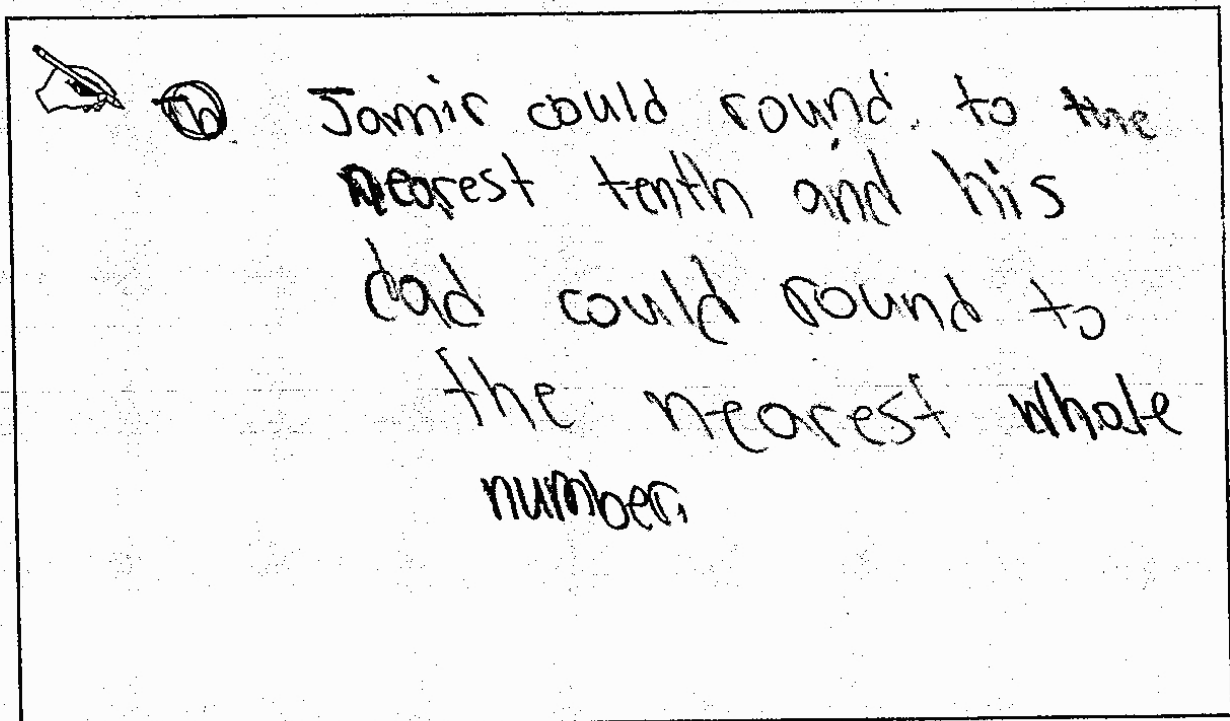 Jamir could round to the
nearest tenth and his
dad could round to
the nearest whole
number.